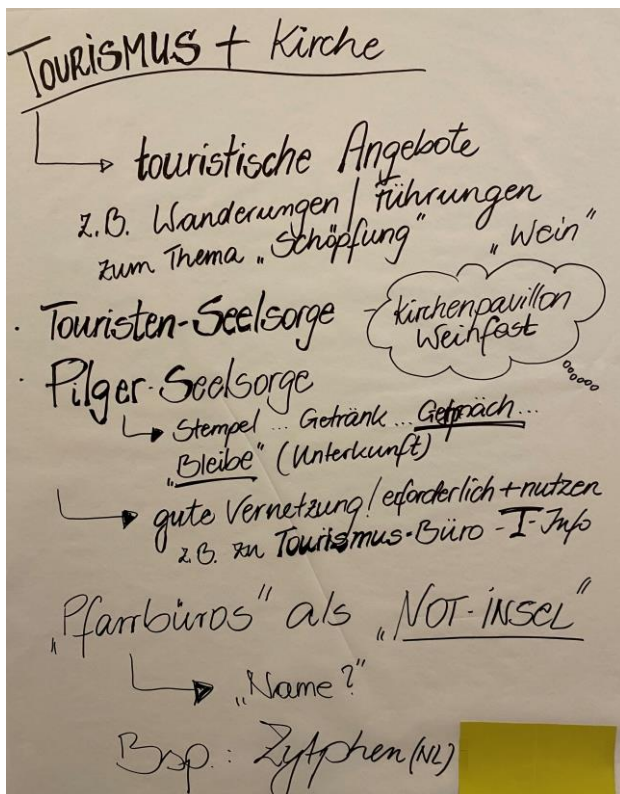 TOURiSMUS + Kirche
touristische Angebote
z.B. Wanderungen / Führungen
zum Thema „Schöpfung" „Wein"
· Touristen-Seelsorge - Kirchenpavillon
Weinfest
· Pilger-Seelsorge
Stempel ... Getränk ... Gespräch ...
„Bleibe" (Unterkunft)
gute Vernetzung / erforderlich + nutzen
z.B. zu Tourismus-Büro - I-Info
„Pfarrbüros" als „NOT-iNSEL"
„Name?"
Bsp.: Zytphen (NL)